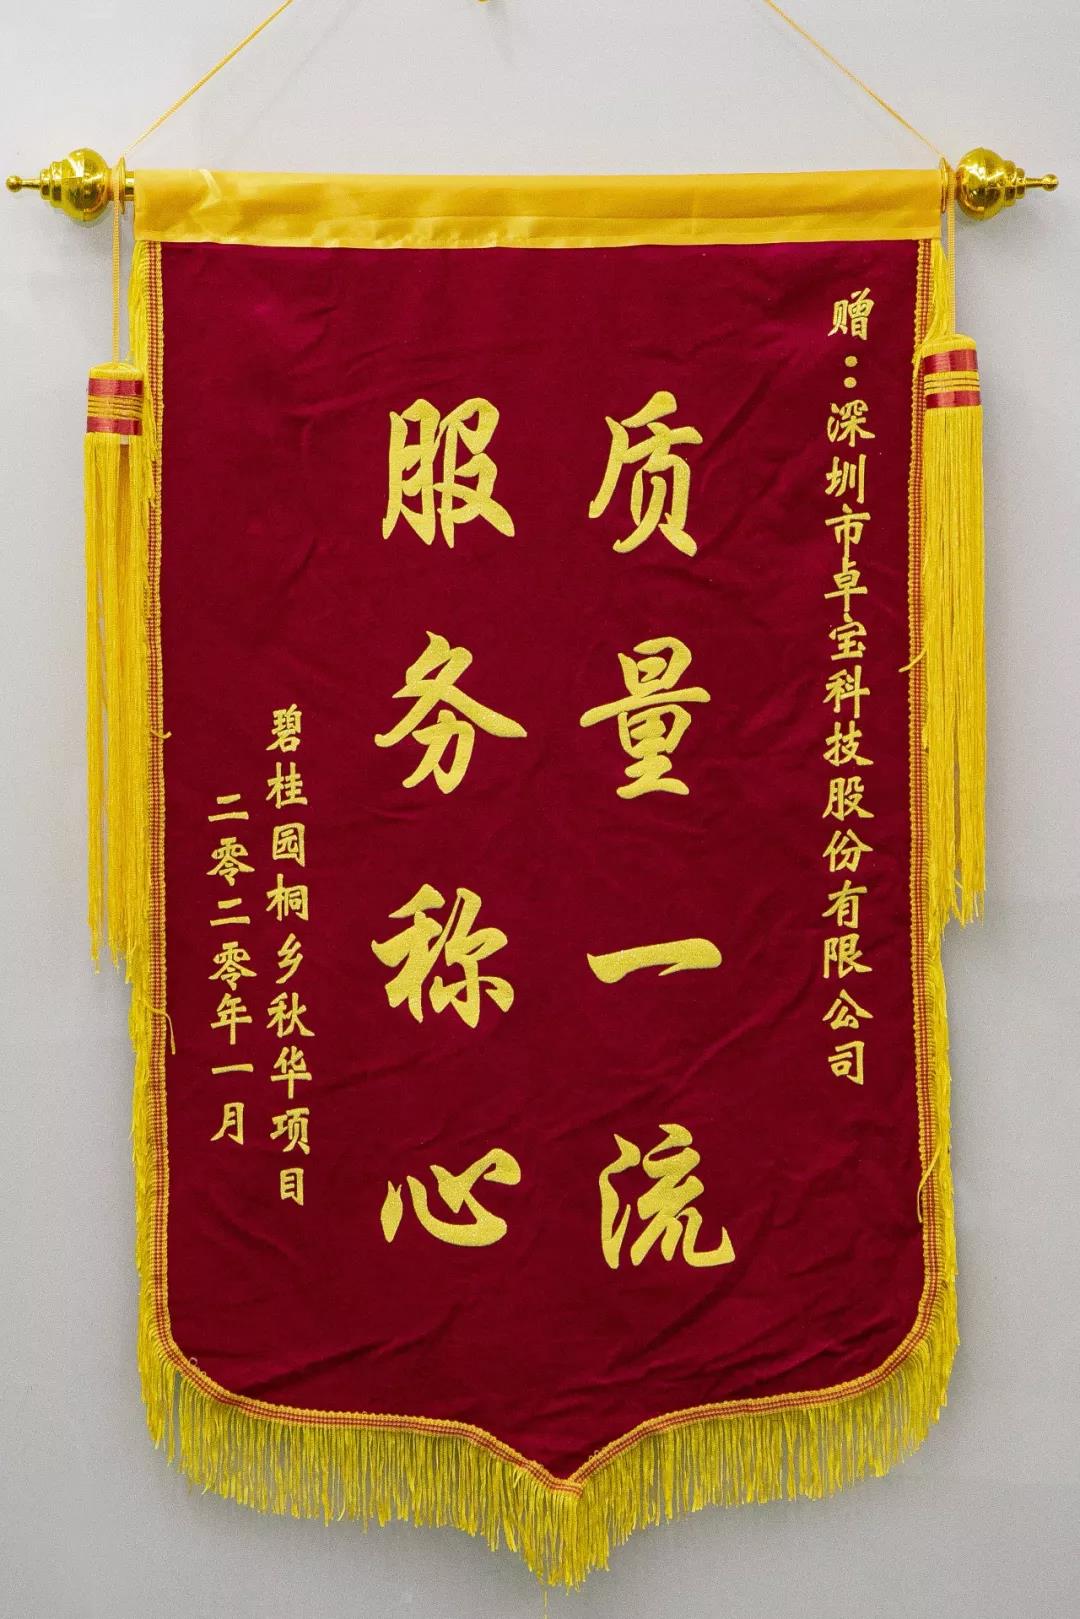 赠：深圳市卓宝科技股份有限公司
质量一流
服务称心
碧桂园桐乡秋华项目
二零二零年一月